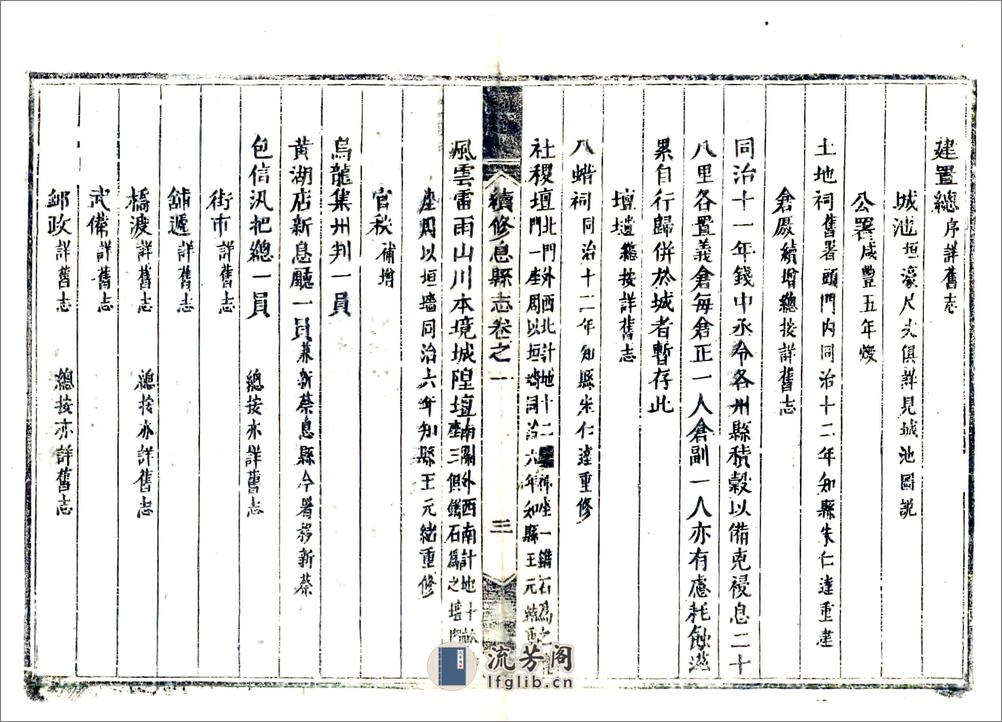 建置總序詳舊志
城池垣濠尺丈俱詳見城池圖説
公署咸豐五年燬
土地祠舊署頭門內同治十二年知縣朱仁達重建
倉廒續增總按詳舊志
同治十一年錢中丞令各州縣積穀以備克祲息二十
八里各置義倉每倉正一人倉副一人亦有慮耗蝕滋
累自行歸併於城者暫存此
壇壝總按詳舊志
八蜡祠同治十二年知縣朱仁達重修
社稷壇北門外西北計地十二
門一座周以垣墻同治六年知縣王元緒重
續修息縣志卷之一
三
風雲雷雨山川本境城隍壇南關外西南計地十
座三俱鐫石爲之墻門
座周以垣墻同治六年知縣王元緒重修
官秩補增
烏龍集州判一員
黃湖店新息廳一員兼新蔡息縣今署移新蔡
包信汛把總一員 總按亦詳舊志
街市詳舊志
鋪遞詳舊志
橋渡詳舊志 總按亦詳舊志
武備詳舊志
郵政詳舊志 總按亦詳舊志
流芳阁
lfglib.cn